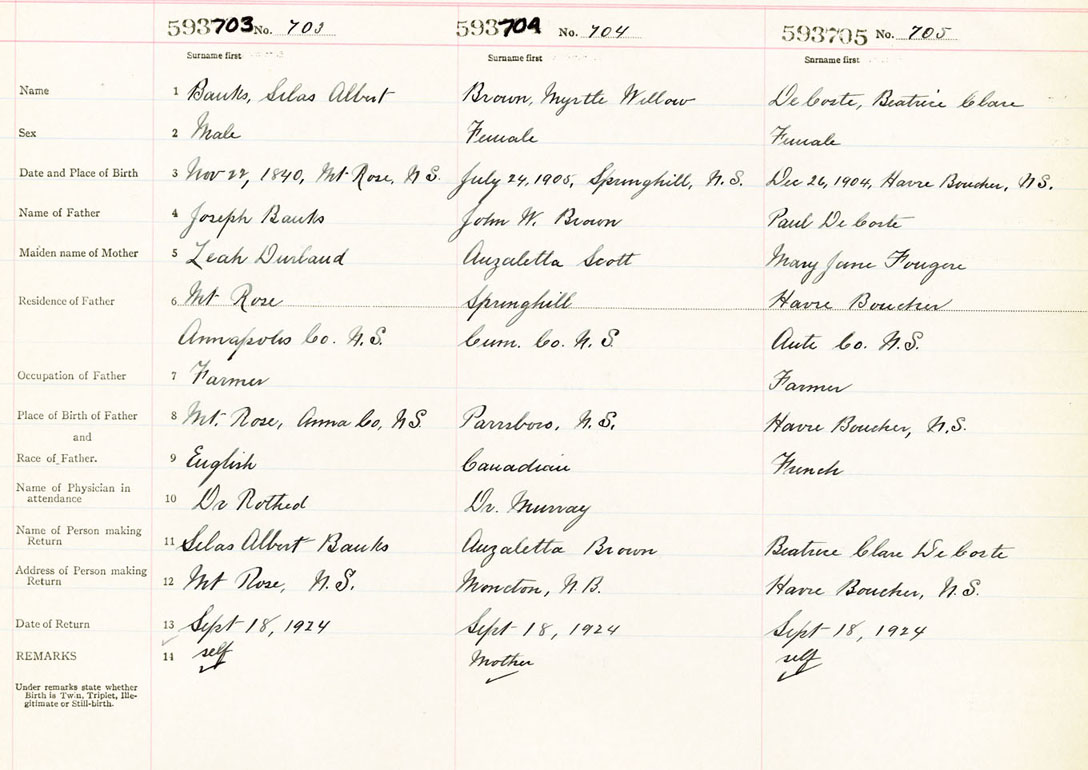 593703 No. 703 593704 No. 704 593705 No. 705
Surname first Surname first Surname first
Name 1 Banks, Silas Albert Brown, Myrtle Willow DeCoste, Beatrice Clare
Sex 2 Male Female Female
Date and Place of Birth 3 Nov 22, 1840, Mt Rose, N S. July 24, 1905, Springhill, N.S. Dec 26, 1904, Havre Boucher, N.S.
Name of Father 4 Joseph Banks John W. Brown Paul DeCoste
Maiden name of Mother 5 Leah Durland Auzaletta Scott Mary Jane Fougere
Residence of Father 6 Mt Rose Springhill Havre Boucher
Annapolis Co. N.S. Cum. Co. N.S. Ant. Co. N.S.
Occupation of Father 7 Farmer Farmer
Place of Birth of Father 8 Mt. Rose, Anna Co, N.S. Parrsboro, N.S. Havre Boucher, N.S.
and
Race of Father. 9 English Canadian French
Name of Physician in
attendance 10 Dr Dr. Murray
Name of Person making
Return 11 Silas Albert Banks Auzaletta Brown Beatrice Clare DeCoste
Address of Person making
Return 12 Mt Rose, N.S. Moncton, N.B. Havre Boucher, N.S.
Date of Return 13 Sept 18, 1924 Sept 18, 1924 Sept 18, 1924
REMARKS 14 self Mother self
Under remarks state whether
Birth is Twin, Triplet, Ille-
gitimate or Still-birth.